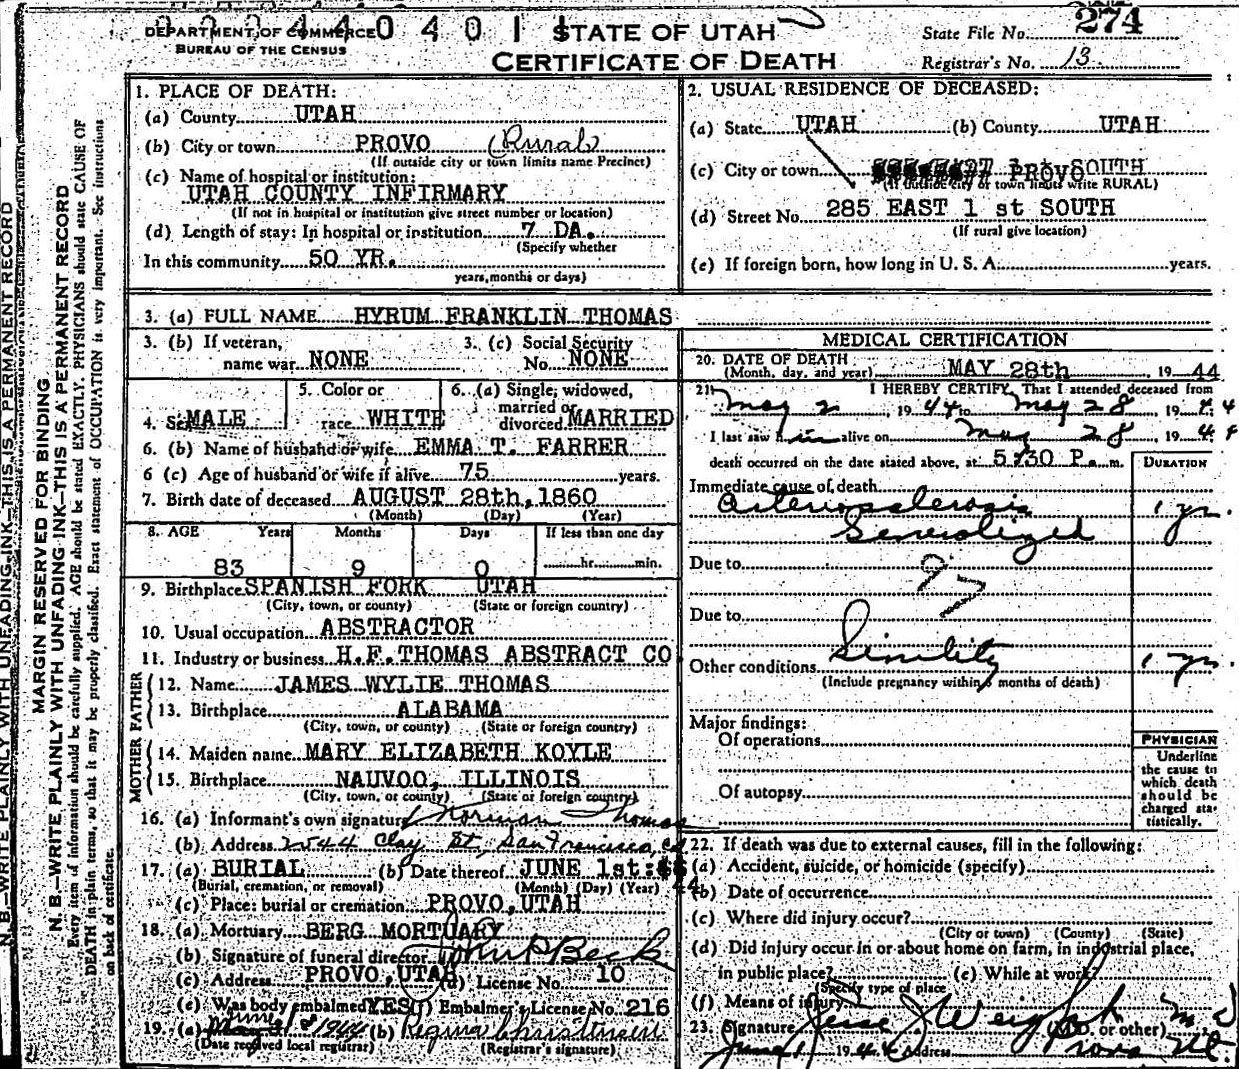 DEPARTMENT OF COMMERCE 0 4 0 1 STATE OF UTAH
BUREAU OF THE CENSUS
CERTIFICATE OF DEATH
State File No. 274
Registrar's No. 13
N. B.—WRITE PLAINLY WITH UNFADING INK—THIS IS A PERMANENT RECORD
MARGIN RESERVED FOR BINDING
N. B.—WRITE PLAINLY WITH UNFADING INK—THIS IS A PERMANENT RECORD
Every item of information should be carefully supplied. AGE should be stated EXACTLY. PHYSICIANS should state CAUSE OF
DEATH in plain terms, so that it may be properly classified. Exact statement of OCCUPATION is very important. See instructions
on back of certificate.
1. PLACE OF DEATH:
(a) County UTAH
(b) City or town PROVO (Rural)
(If outside city or town limits name Precinct)
(c) Name of hospital or institution:
UTAH COUNTY INFIRMARY
(If not in hospital or institution give street number or location)
(d) Length of stay: In hospital or institution 7 DA.
(Specify whether
In this community 50 YR.
years, months or days)
2. USUAL RESIDENCE OF DECEASED:
(a) State UTAH (b) County UTAH
(c) City or town PROVO SOUTH
(If outside city or town limits write RURAL)
(d) Street No. 285 EAST 1 st SOUTH
(If rural give location)
(e) If foreign born, how long in U. S. A. years.
3. (a) FULL NAME HYRUM FRANKLIN THOMAS
3. (b) If veteran, name war NONE
3. (c) Social Security No. NONE
4. Sex MALE
5. Color or race WHITE
6. (a) Single, widowed, married or divorced MARRIED
6. (b) Name of husband or wife EMMA T. FARRER
6 (c) Age of husband or wife if alive 75 years.
7. Birth date of deceased AUGUST 28th, 1860
(Month) (Day) (Year)
8. AGE Years Months Days If less than one day
83 9 0 hr. min.
9. Birthplace SPANISH FORK UTAH
(City, town, or county) (State or foreign country)
10. Usual occupation ABSTRACTOR
11. Industry or business H.F. THOMAS ABSTRACT CO
FATHER
12. Name JAMES WYLIE THOMAS
13. Birthplace ALABAMA
(City, town, or county) (State or foreign country)
MOTHER
14. Maiden name MARY ELIZABETH KOYLE
15. Birthplace NAUVOO, ILLINOIS
(City, town, or county) (State or foreign country)
16. (a) Informant's own signature Norman Thomas
(b) Address 2544 Clay St, San Francisco, Cal
17. (a) BURIAL (b) Date thereof JUNE 1st: 44
(Burial, cremation, or removal) (Month) (Day) (Year)
(c) Place: burial or cremation PROVO, UTAH
18. (a) Mortuary BERG MORTUARY
(b) Signature of funeral director
(c) Address PROVO, UTAH (d) License No. 10
(e) Was body embalmed YES (f) Embalmer's License No. 216
19. (a) June 1944 (b) Regina Christensen
(Date received local registrar) (Registrar's signature)
MEDICAL CERTIFICATION
20. DATE OF DEATH
(Month, day, and year) MAY 28th, 1944
21. I HEREBY CERTIFY, That I attended deceased from
May 2, 1944 to May 28, 1944
I last saw him alive on May 28, 1944
death occurred on the date stated above, at 5:30 P. m.
DURATION
Immediate cause of death
Arteriosclerosis 1 yr.
Generalized
Due to 97
Due to
Senility
Other conditions 1 yr.
(Include pregnancy within 3 months of death)
Major findings:
Of operations
Of autopsy
PHYSICIAN
Underline
the cause to
which death
should be
charged sta-
tistically.
22. If death was due to external causes, fill in the following:
(a) Accident, suicide, or homicide (specify)
(b) Date of occurrence
(c) Where did injury occur?
(City or town) (County) (State)
(d) Did injury occur in or about home on farm, in industrial place,
in public place? (e) While at work?
(Specify type of place
(f) Means of injury
23. Signature Jesse J Weight M.D
(M.D. or other)
June 1 1944 Address Provo Ut.